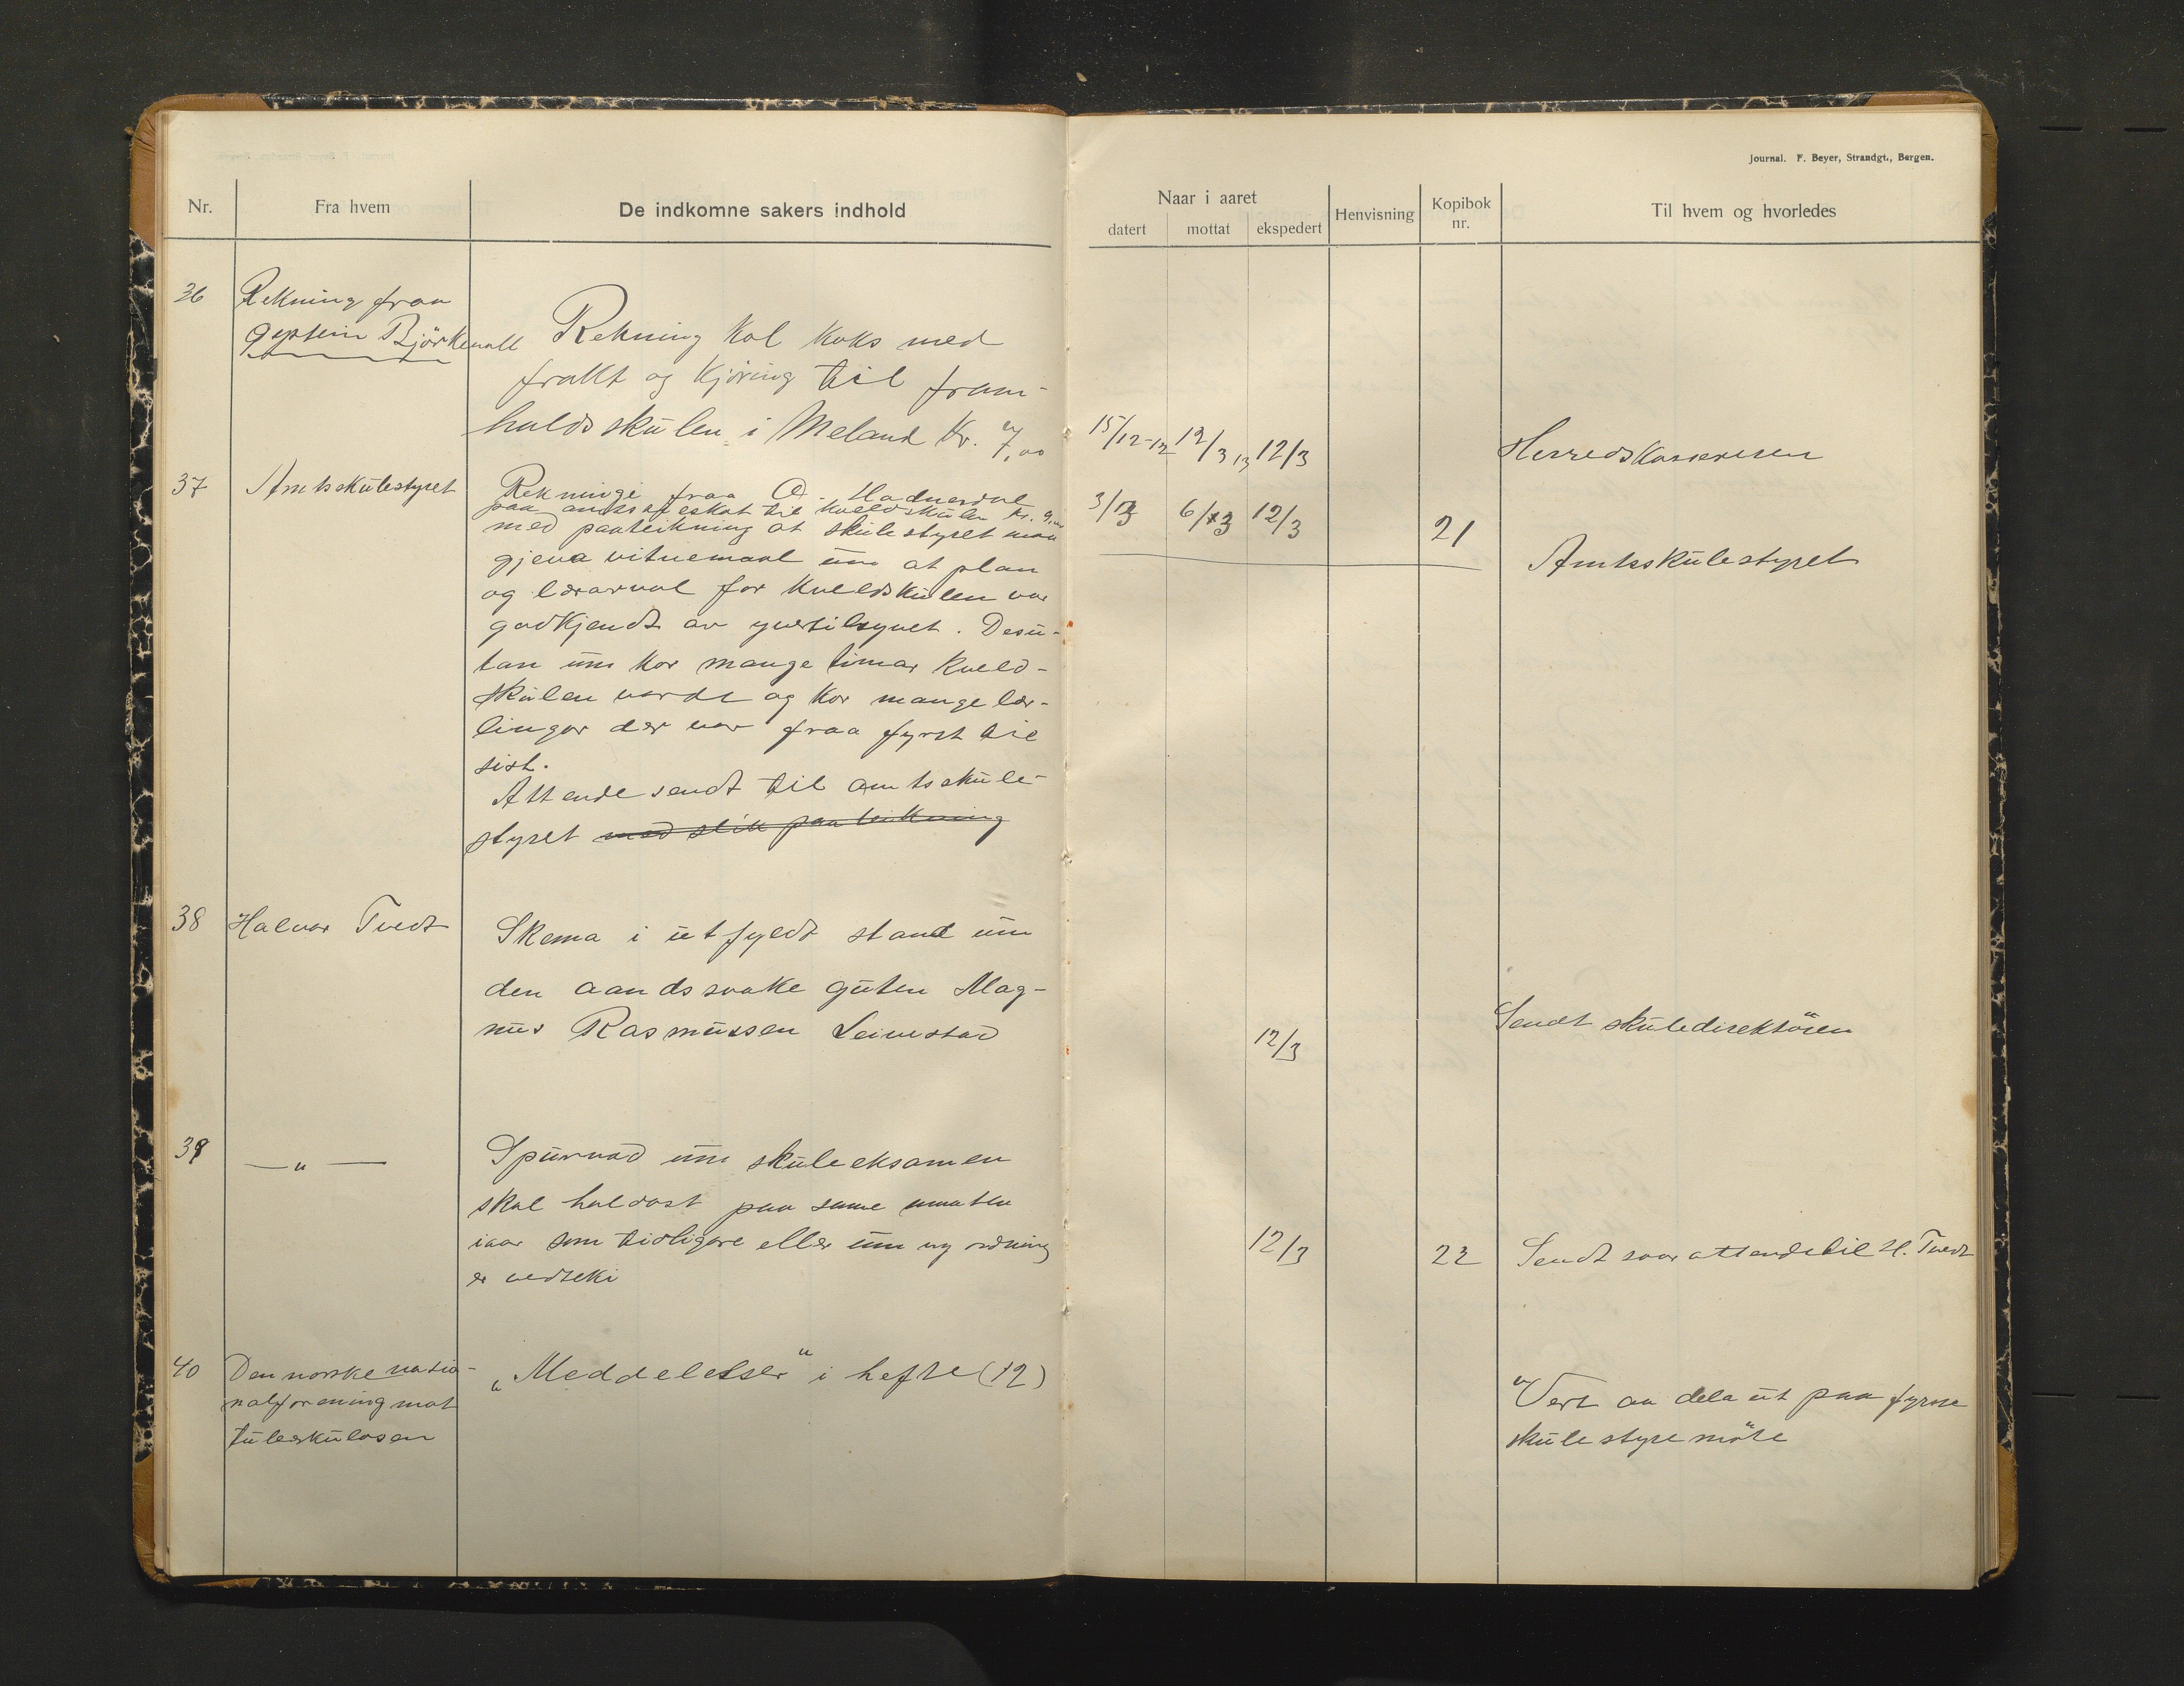 Journal. F. Beyer, Strandgt., Bergen.
Nr.
Fra hvem
De indkomne sakers indhold
Naar i aaret
datert
mottat
ekspedert
Henvisning
Kopibok
nr.
Til hvem og hvorledes
36
Rekning fraa
Björkevoll
Rekning kol koks med
frakt og kjöring til fram-
haldsskulen i Meland Kr. 7,00
15/12-12
12/3 13
12/3
Herredskasseresen
37
Amtsskulestyret
Rekningi fraa O.
paa til kveldskule kr.
med paateikning at skulestyret maa
gjeva vitnemaal um at plan
og lærarval for kveldskulen var
godkjendt av yvertilsynet. Desu-
tan um kor mange timar kveld-
skulen varde og kor mange lær-
lingar der var fraa fyrst til
sist.
Attende sendt til amtsskule-
styret med slik paateikning
3/3
6/3
12/3
21
Amtsskulestyret
38
Halvor Tvedt
Skema i utfyldt stand um
den aandssvake guten Mag-
nus Rasmussen Leivestad
12/3
Sendt skuledirektören
39
— " —
Spurnad um skuleeksamen
skal haldast paa same maaten
iaar som tidligare eller um ny ordning
er vedteki
12/3
22
Sendt svar attende til H. Tvedt
40
Den norske natio-
nalforening mot
tuberkulosen
„Meddelelser" i hefte (12)
Vert aa dela ut paa fyrste
skulestyremöte